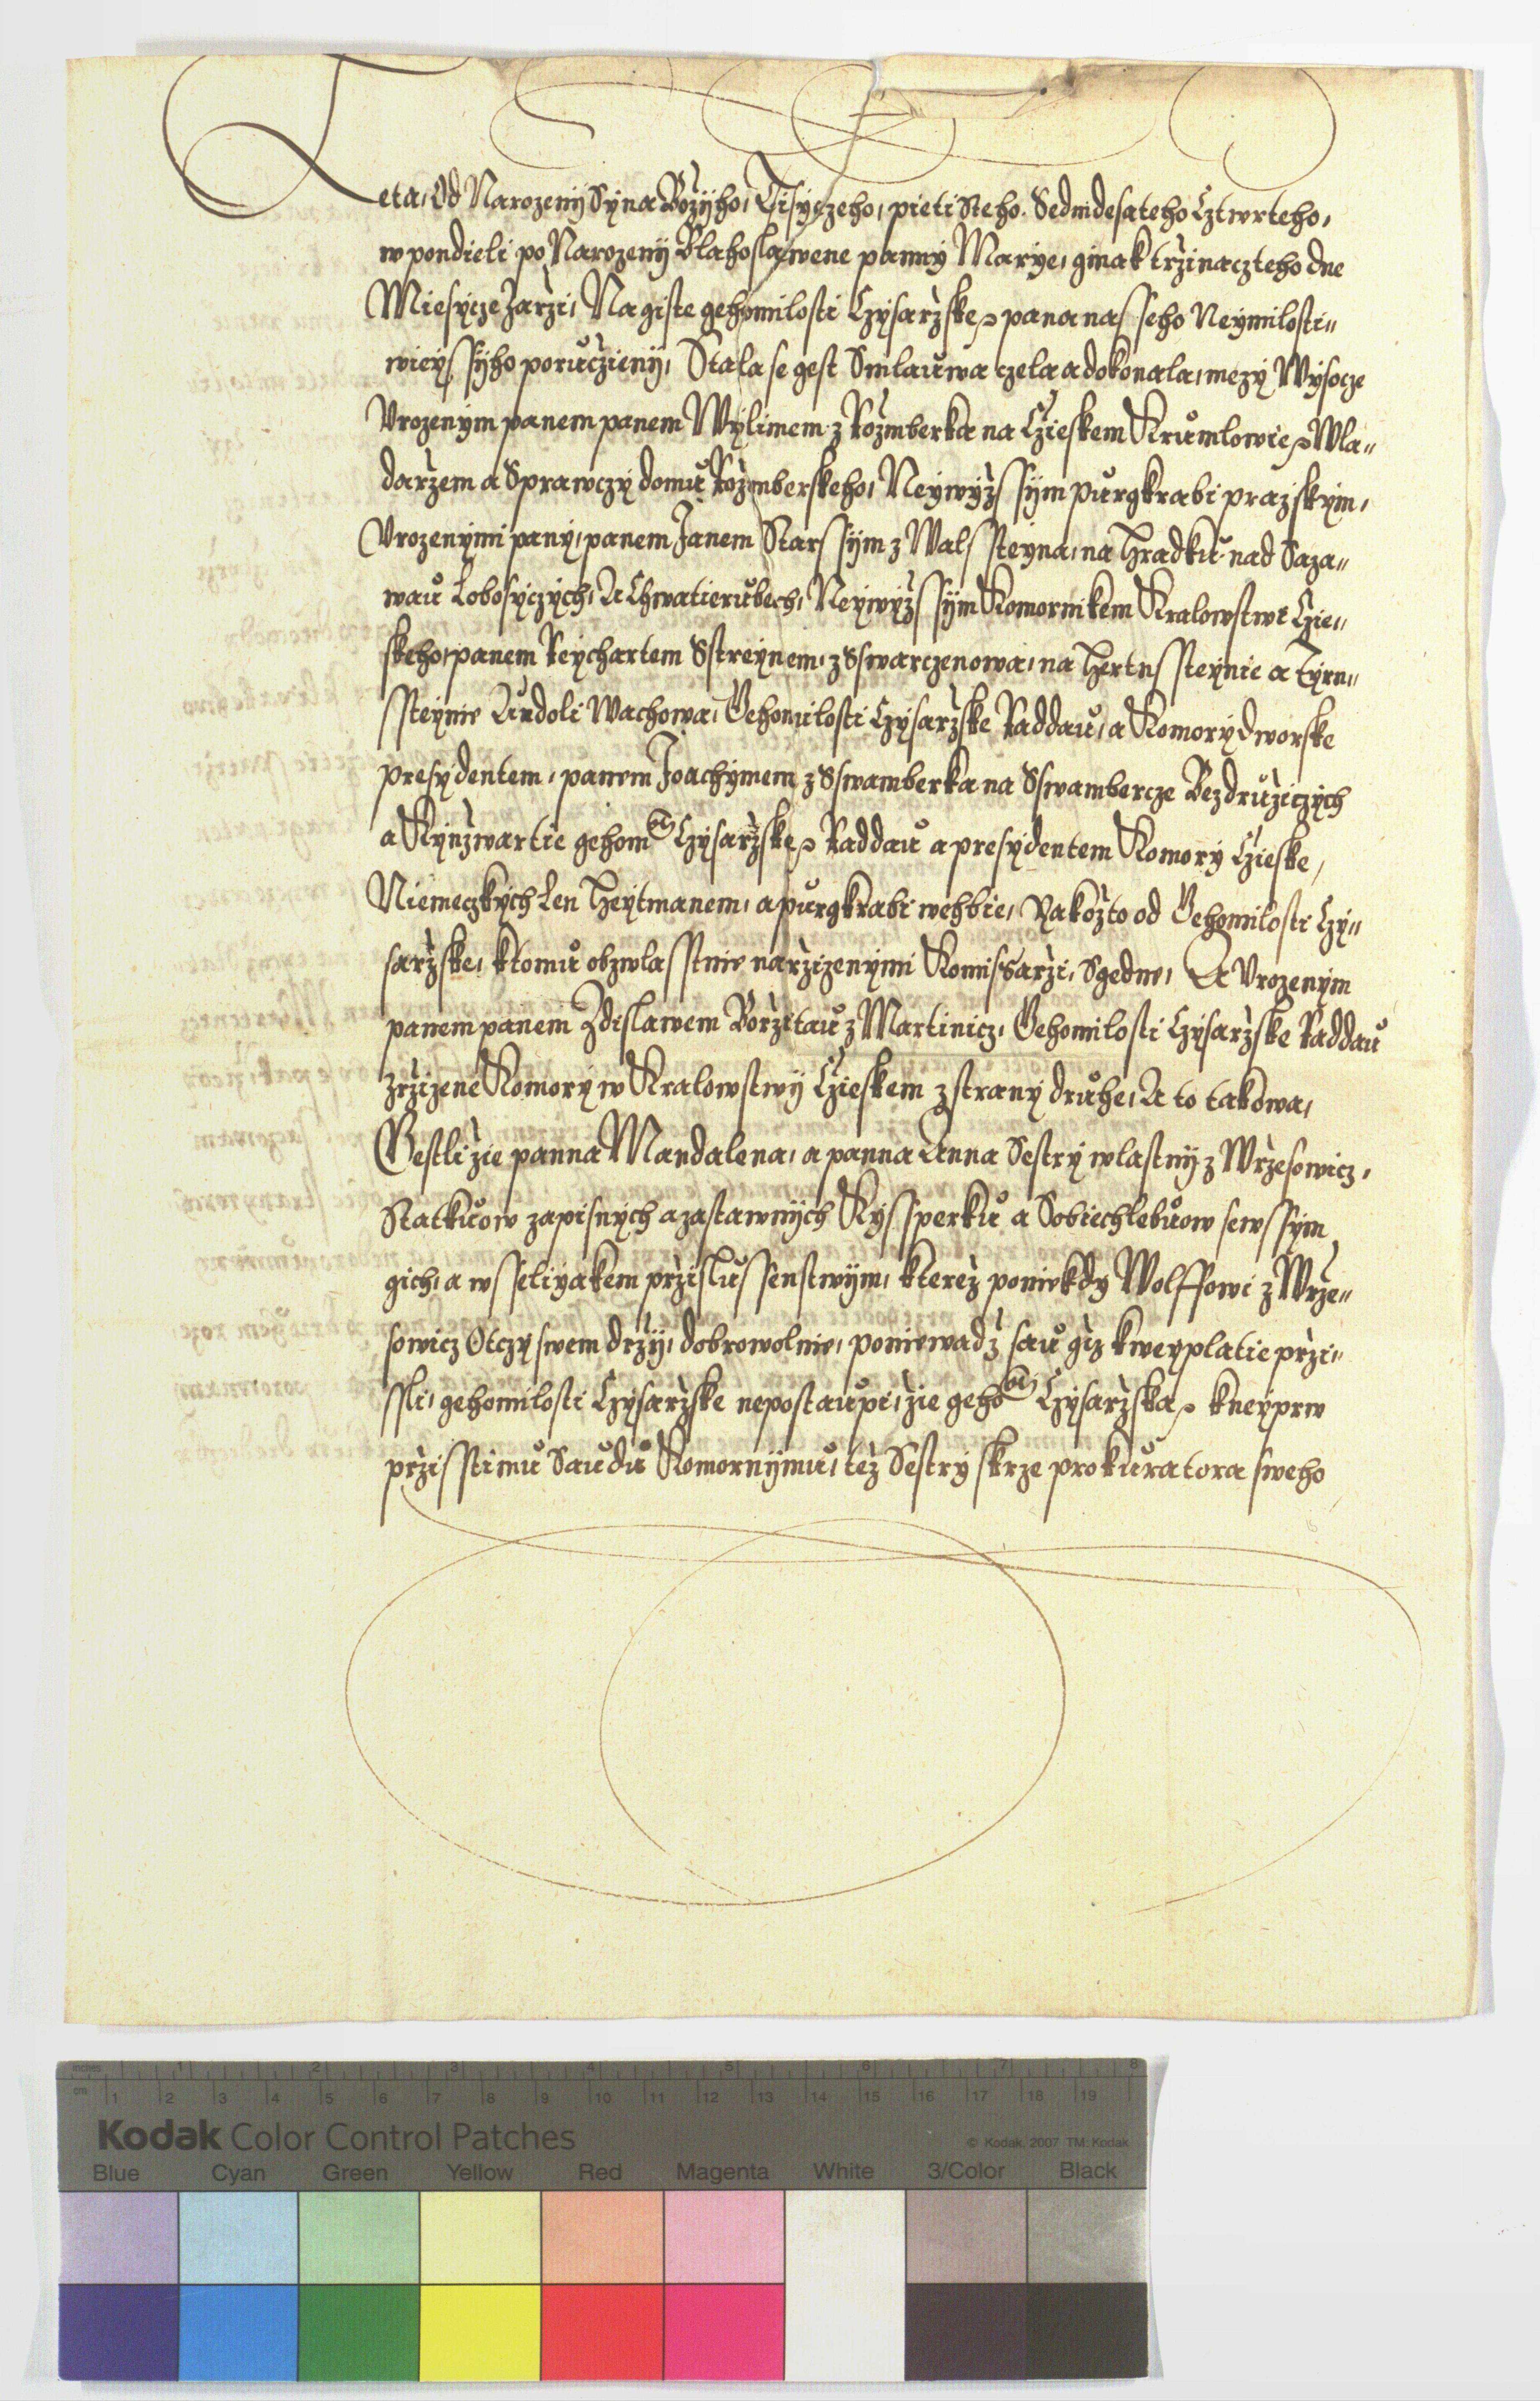 Leta, Od Narozenij Syna Božijho, Tisyczeho, pieti Steho. Sedmdesateho Cztwrteho,
w pondieli po Narozenij Blahoslawene panny Marye, ginak tržinacztehо dne
Miesycze Zarži, Na giste gehomilosti Czysaržske, pana nasseho Neymilosti„
wieyssyho poruczienij, Stala se gest Smlauwa czela a dokonala, mezy Wysocze
Vrozenym panem panem Wylimem z Rozmberka na Czieskem Krumlowie, Wla„
daržem a Sprawczy domu Rozmberskeho, Neywyžssym purgkrabi pražskym,
Vrozenymi pany, panem Janem Starssym z Walssteyna, na Hradku nad Saza„
wau Lobosyczych, A Chwatierubech, Neywyžssym Komornikem Kralowstwi Czie„
skeho, panem Reychartem Sstreynem, z Sswarczenowa, na Hertnssteynie a Tyrn„
ssteynie Audoli Wachowa, Gehomilosti Czysaržske Raddau, a Komory dworske
presydentem, panem Joachymem z Sswamberka na Sswambercze Bezdružiczych
a Kynžwartie gehomti Czysaržske, Raddau a presydentem Komory Czieske,
Niemeczkych Len Heytmanem, a purgkrabi wchbie, Yakožto od Gehomilosti Czy„
saržske, ktomu obzwlasstnie naržizenymi Komissarži, Sgedne, A Vrozenym
panem panem Zdislawem Boržitau z Martinicz, Gehomilosti Czysaržske Raddau
zržizene Komory w Kralowstwij Czieskem z strany druhe, A to takowa,
Gestližie panna Mandalena, a panna Anna Sestry wlastnij z Wržesowicz,
Statkuow zapisnych a zastawnijch Kyssperku a Sobiechlebuow sewssym
gich, a wsseliyakem pržislussenstwijm, kterež poniekdy Wolffowi z Wrže„
sowicz Otczy swem držij, dobrowolnie, poniewadž sau giž kweyplatie prži„
ssli, gehomilosti Czysaržske nepostaupi, žie gehoMt Czysaržska, kneyprw
pržisstimu Saudu Komornijmu, tež Sestry skrze prokuratora sweho
inches 1 2 3 4 5 6 7 8
cm 1 2 3 4 5 6 7 8 9 10 11 12 13 14 15 16 17 18 19
Kodak Color Control Patches © Kodak, 2007 TM: Kodak
Blue Cyan Green Yellow Red Magenta White 3/Color Black